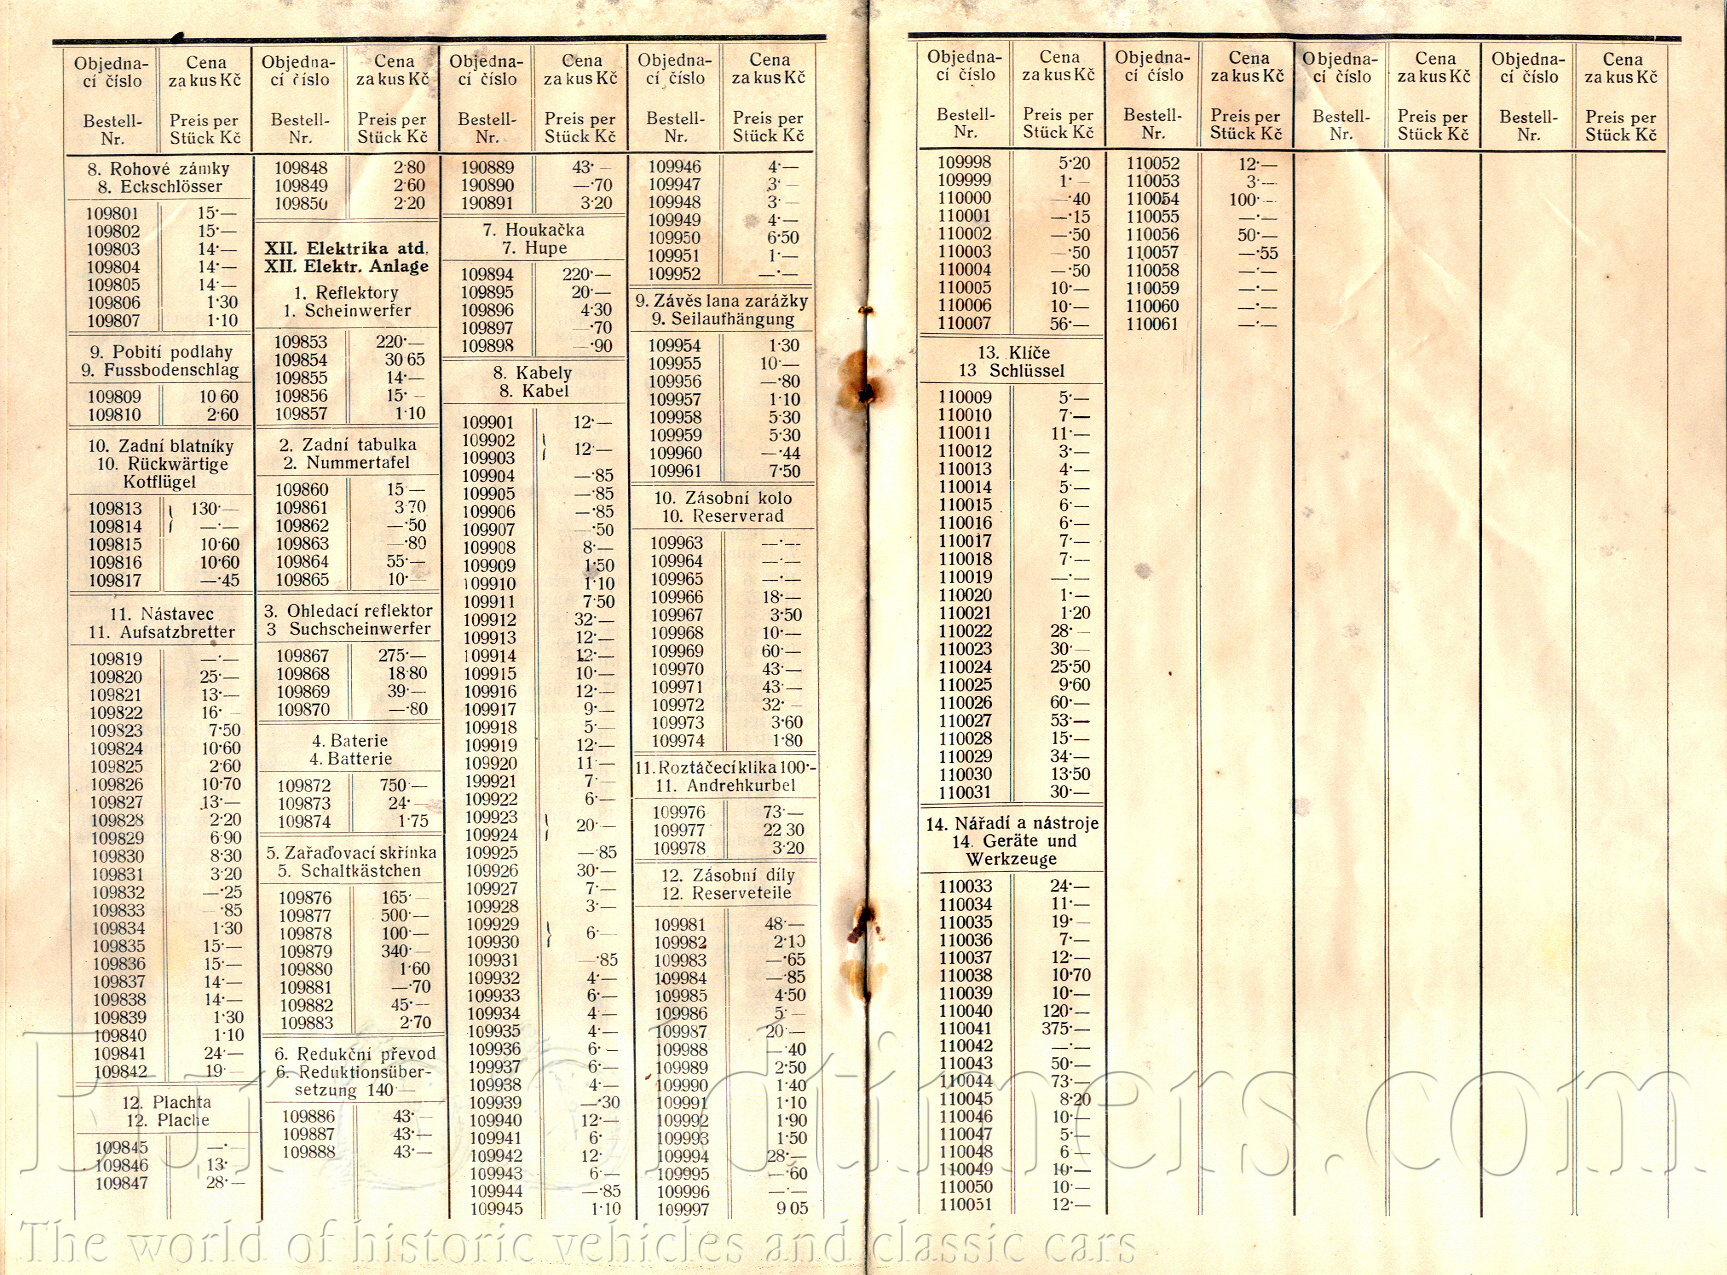 Objedna-
cí číslo
Bestell-
Nr.
Cena
za kus Kč
Preis per
Stück Kč
8. Rohové zámky
8. Eckschlösser
109801 15·—
109802 15·—
109803 14·—
109804 14·—
109805 14·—
109806 1·30
109807 1·10
9. Pobití podlahy
9. Fussbodenschlag
109809 10 60
109810 2·60
10. Zadní blatníky
10. Rückwärtige
Kotflügel
109813 130·—
109814 —·—
109815 10·60
109816 10·60
109817 —·45
11. Nástavec
11. Aufsatzbretter
109819 —·—
109820 25·—
109821 13·—
109822 16· –
109823 7·50
109824 10·60
109825 2·60
109826 10·70
109827 13·—
109828 2·20
109829 6·90
109830 8·30
109831 3·20
109832 —·25
109833 –·85
109834 1·30
109835 15·—
109836 15·—
109837 14·—
109838 14·—
109839 1·30
109840 1·10
109841 24·—
109842 19·—
12. Plachta
12. Plache
109845 —·
109846 13·
109847 28·—
Objedna-
cí číslo
Bestell-
Nr.
Cena
za kus Kč
Preis per
Stück Kč
109848 2·80
109849 2·60
109850 2·20
XII. Elektrika atd.
XII. Elektr. Anlage
1. Reflektory
1. Scheinwerfer
109853 220·—
109854 30 65
109855 14·—
109856 15· –
109857 1·10
2. Zadní tabulka
2. Nummertafel
109860 15·—
109861 3·70
109862 —·50
109863 —·80
109864 55·—
109865 10·—
3. Ohledací reflektor
3 Suchscheinwerfer
109867 275·—
109868 18·80
109869 39·—
109870 —·80
4. Baterie
4. Batterie
109872 750·—
109873 24·—
109874 1·75
5. Zařaďovací skřínka
5. Schaltkästchen
109876 165·–
109877 500·—
109878 100·—
109879 340·—
109880 1·60
109881 —·70
109882 45·–
109883 2·70
6. Redukční převod
6. Reduktionsüber-
setzung 140 —
109886 43·—
109887 43·—
109888 43·—
Objedna-
cí číslo
Bestell-
Nr.
Cena
za kus Kč
Preis per
Stück Kč
190889 43· –
190890 —·70
190891 3·20
7. Houkačka
7. Hupe
109894 220·—
109895 20·—
109896 4·30
109897 –·70
109898 —·90
8. Kabely
8. Kabel
109901 12·—
109902
109903 12·—
109904 —·85
109905 —·85
109906 —·85
109907 —·50
109908 8·—
109909 1·50
109910 1·10
109911 7·50
109912 32·—
109913 12·—
109914 12·—
109915 10·—
109916 12·—
109917 9·—
109918 5·—
109919 12·—
109920 11·—
199921 7·—
109922 6·—
109923
109924 20·—
109925 —·85
109926 30·—
109927 7·—
109928 3·—
109929
109930 6·—
109931 —·85
109932 4·—
109933 6·—
109934 4·—
109935 4·—
109936 6·–
109937 6·—
109938 4·—
109939 —·30
109940 12·—
109941 6·
109942 12·
109943 6·—
109944 —·85
109945 1·10
Objedna-
cí číslo
Bestell-
Nr.
Cena
za kus Kč
Preis per
Stück Kč
109946 4·—
109947 3·–
109948 3·–
109949 4·—
109950 6·50
109951 1·—
109952 —·—
9. Závěs lana zarážky
9. Seilaufhängung
109954 1·30
109955 10·—
109956 —·80
109957 1·10
109958 5·30
109959 5·30
109960 —·44
109961 7·50
10. Zásobní kolo
10. Reserverad
109963 —·—
109964 —·—
109965 —·—
109966 18·—
109967 3·50
109968 10·—
109969 60·—
109970 43·—
109971 43·—
109972 32·–
109973 3·60
109974 1·80
11. Roztáčecí klika 100·-
11. Andrehkurbel
109976 73·—
109977 22 30
109978 3·20
12. Zásobní díly
12. Reserveteile
109981 48·—
109982 2·10
109983 —·65
109984 —·85
109985 4·50
109986 5·–
109987 20·—
109988 —·40
109989 2·50
109990 1·40
109991 1·10
109992 1·90
109993 1·50
109994 28·—
109995 —·60
109996 —·—
109997 9 05
Objedna-
cí číslo
Bestell-
Nr.
Cena
za kus Kč
Preis per
Stück Kč
109998 5·20
109999 1·–
110000 —·40
110001 —·15
110002 —·50
110003 —·50
110004 —·50
110005 10·—
110006 10·—
110007 56·—
13. Klíče
13 Schlüssel
110009 5·—
110010 7·—
110011 11·—
110012 3·—
110013 4·—
110014 5·—
110015 6·—
110016 6·—
110017 7·—
110018 7·—
110019 —·—
110020 1·—
110021 1·20
110022 28·—
110023 30·—
110024 25·50
110025 9·60
110026 60·—
110027 53·—
110028 15·—
110029 34·—
110030 13·50
110031 30·—
14. Nářadí a nástroje
14. Geräte und
Werkzeuge
110033 24·—
110034 11·—
110035 19·—
110036 7·—
110037 12·—
110038 10·70
110039 10·—
110040 120·—
110041 375·—
110042 —·—
110043 50·—
110044 73·—
110045 8·20
110046 10·—
110047 5·—
110048 6 —
110049 10·—
110050 10·—
110051 12·—
Objedna-
cí číslo
Bestell-
Nr.
Cena
za kus Kč
Preis per
Stück Kč
110052 12·—
110053 3·—
110054 100·–
110055 —·—
110056 50·—
110057 —·55
110058 —·—
110059 —·—
110060 —·—
110061 —·—
Objedna-
cí číslo
Bestell-
Nr.
Cena
za kus Kč
Preis per
Stück Kč
Objedna-
cí číslo
Bestell-
Nr.
Cena
za kus Kč
Preis per
Stück Kč
EurOldtimers.com
The world of historic vehicles and classic cars